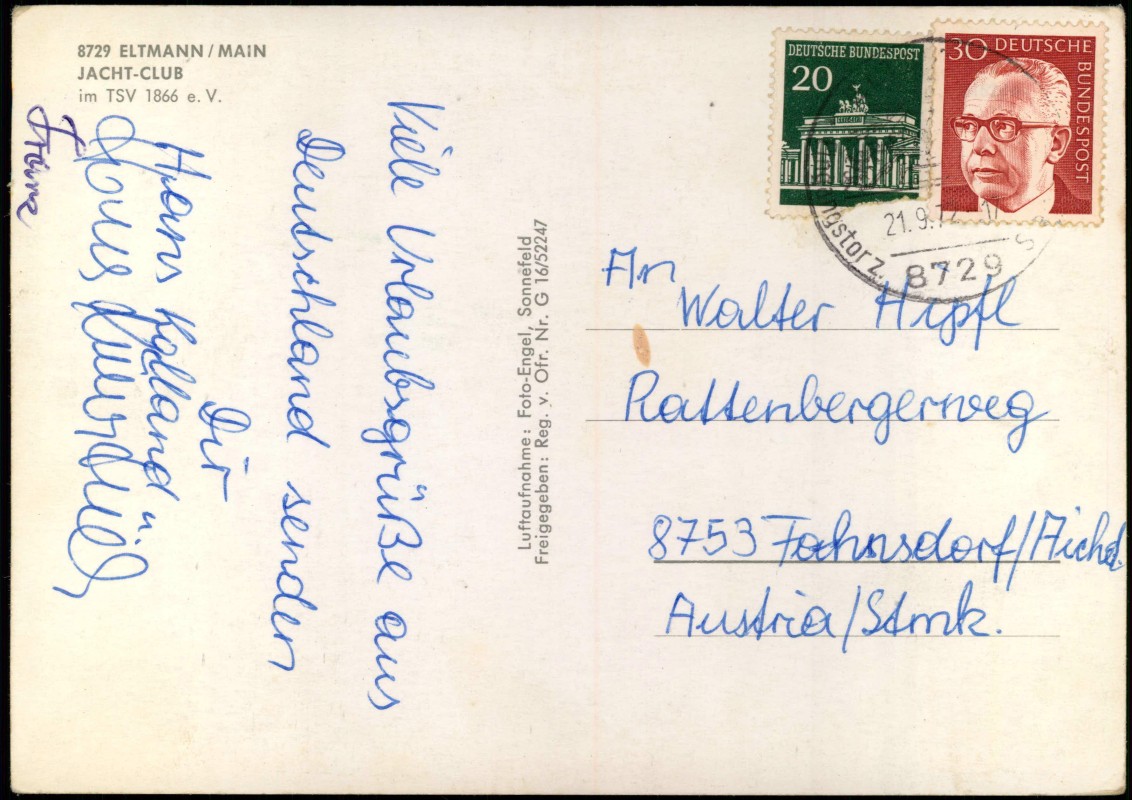 8729 ELTMANN/MAIN
JACHT-CLUB
im TSV 1866 e. V.
Viele Urlaubsgrüße aus
Deutschland senden
Dir
Hans Kolland
Franz
Luftaufnahme: Foto-Engel, Sonnefeld
Freigegeben: Reg. v. Ofr. Nr. G 16/52247
DEUTSCHE BUNDESPOST
20
30 DEUTSCHE
BUNDESPOST
21.9.72
8729
An
Walter Hipfl
Rattenbergerweg
8753 Fohnsdorf/Aichd.
Austria/Stmk.